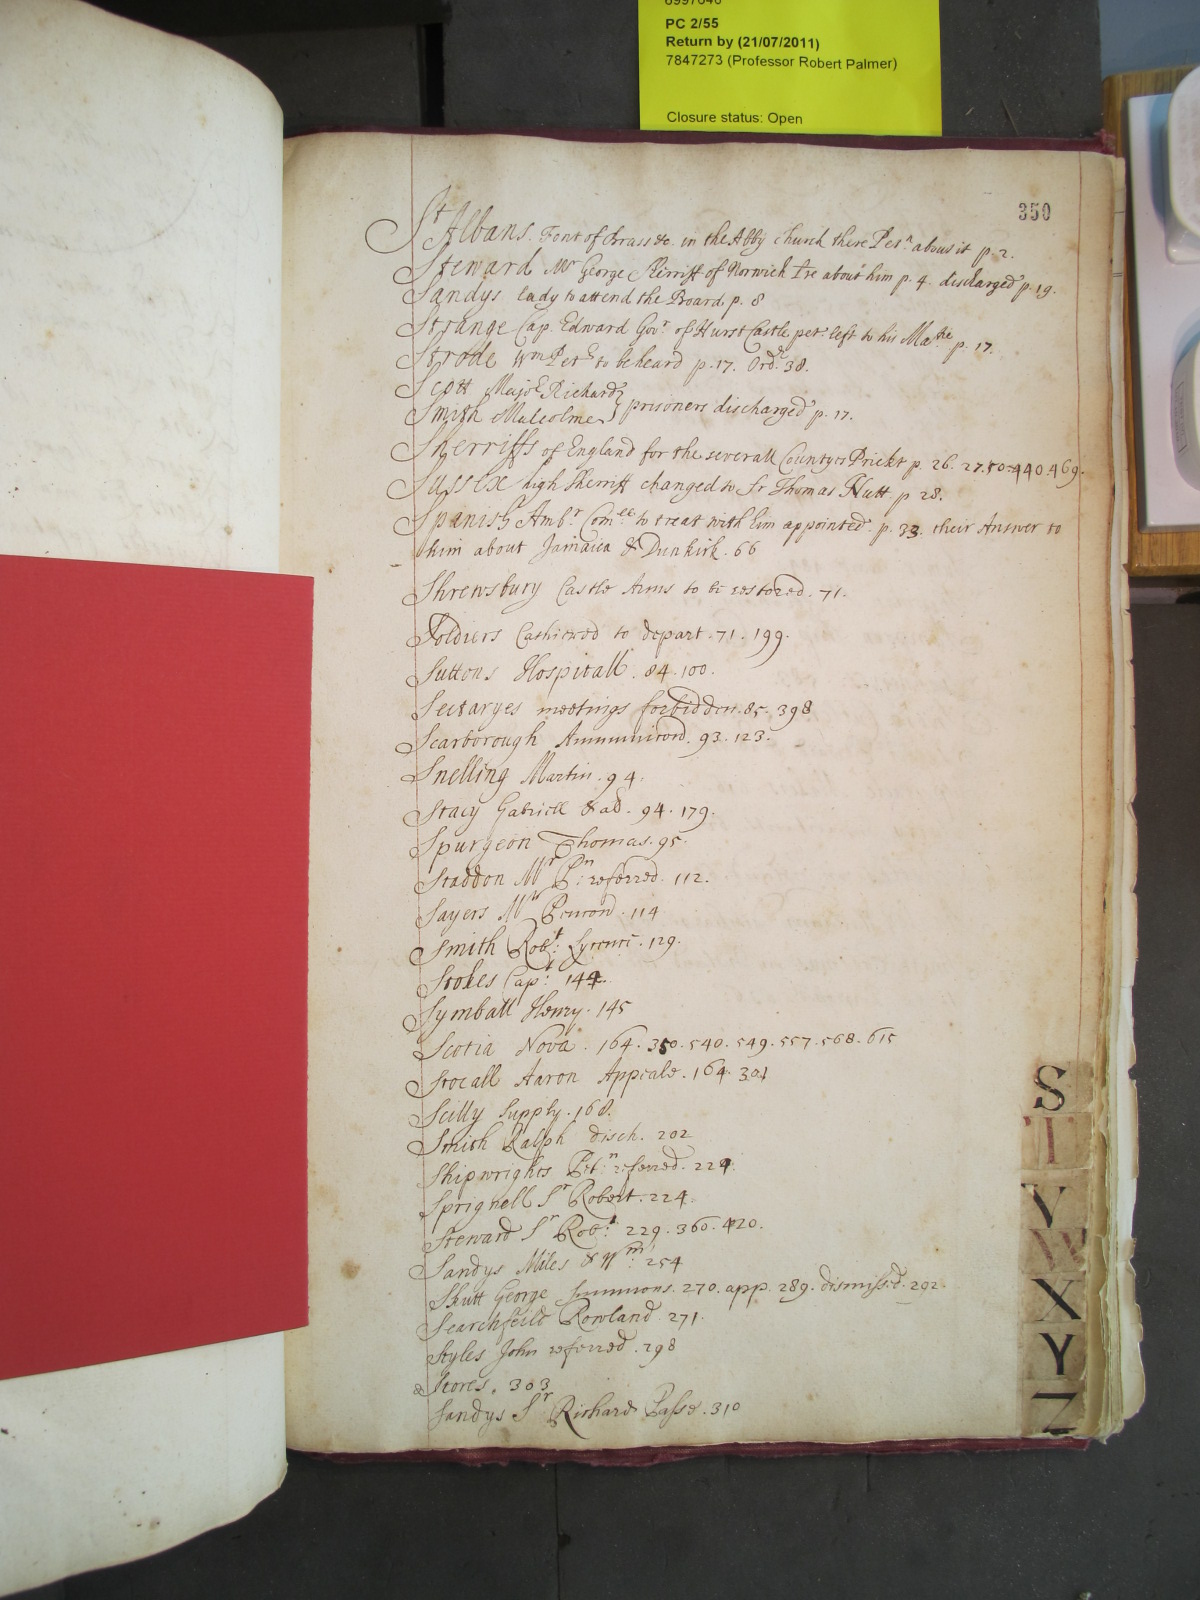 PC 2/55
Return by (21/07/2011)
7847273 (Professor Robert Palmer)
Closure status: Open
350
St Albans. Font of Brass &c. in the Abby church there Petn about it p. 2.
Steward Mr George Sherriff of Norwich Lre about him p. 4. discharged p. 19.
Sandys lady to attend the Board. p. 8
Strange Cap. Edward Govr of Hurst Castle petn left to his Matie p. 17.
Strode Wm to be heard p. 17. Ord. 38.
Scott Major Richard
Smith Malcolme } prisoners discharged p. 17.
Sherriffs of England for the severall Countyes Prickt p. 26. 27. 50. 440. 469.
Sussex high Sherriff changed to Sr Thomas Nutt p 28.
Spanish Ambr Comee to treat with him appointed. p. 33. their Answer to
him about Jamaica & Dunkirk. 66
Shrewsbury Castle Arms to be restored. 71.
Soldiers Cashiered to depart. 71. 199.
Suttons Hospitall. 84. 100.
Sectaryes meetings forbidden. 85. 398
Scarborough 93. 123.
Snelling Martin. 94.
Stacy Gabriell & ad. 94. 179.
Spurgeon Thomas. 95.
Staddon Mr Pn: referred. 112.
Sayers Mr 114
Smith Robt: 129.
Stokes Capt: 144.
Symball Henry. 145
Scotia Nova. 164. 350. 540. 549. 557. 568. 615
Stocall Aaron Appeale. 164. 301
Scilly Supply. 168.
Smith Ralph disch. 202
Shipwrights Petn: referred. 224.
Sprignell Sr Robert. 224.
Steward Sr Robt: 229. 360. 420.
Sandys Miles & Wm: 254
Shutt George Summons. 270. app. 289. dismissed. 292.
Searchfeild Rowland. 271.
Styles John referred. 298
Stores. 303
Sandys Sr Richard Passe. 310
S
T
V
W
X
Y
Z